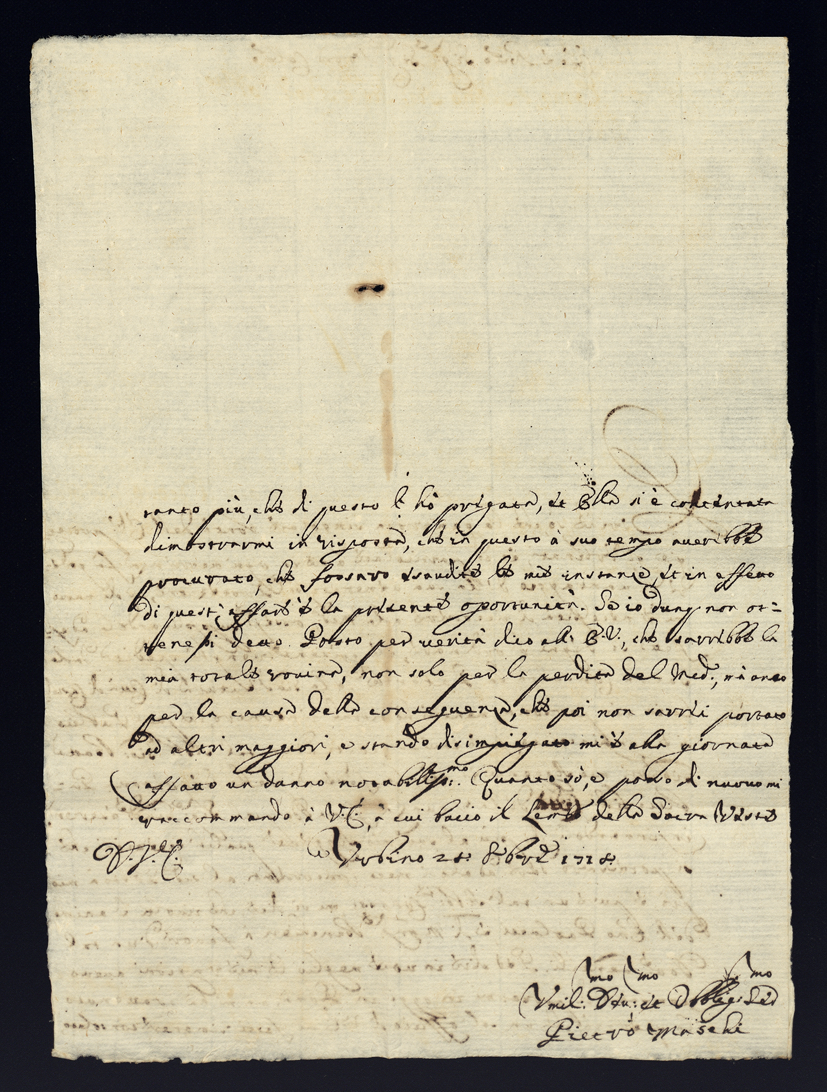 tanto più, che di questo l'hò pregata, et Ella si è contentata
dimostrarmi in risposta, che in questo à suo tempo averebbe
procurato, che fossaro esaudite le mie instanze, et in effetto
di questi affari è la presente oportunità. Se io dunq; non ot=
tenessi detto Posto per verità dico all' E.V., che sarrebbe la
mia totale rovina, non solo per la perdita del Med.°, mà anco
per la causa della conseguenza, che poi non sarrei portato
ad altri maggiori, e stando disimpiegato mi è alla giornata
affatto un danno notabiliss:mo. Quanto sò, e posso di nuovo mi
raccommando à V.E., à cui bacio il Lembo della Sacra Veste
D. V. E. Urbino 28: 1718:
mo mo mo
Umil: Dev: et Obblig: Ser
Pietro Maschi